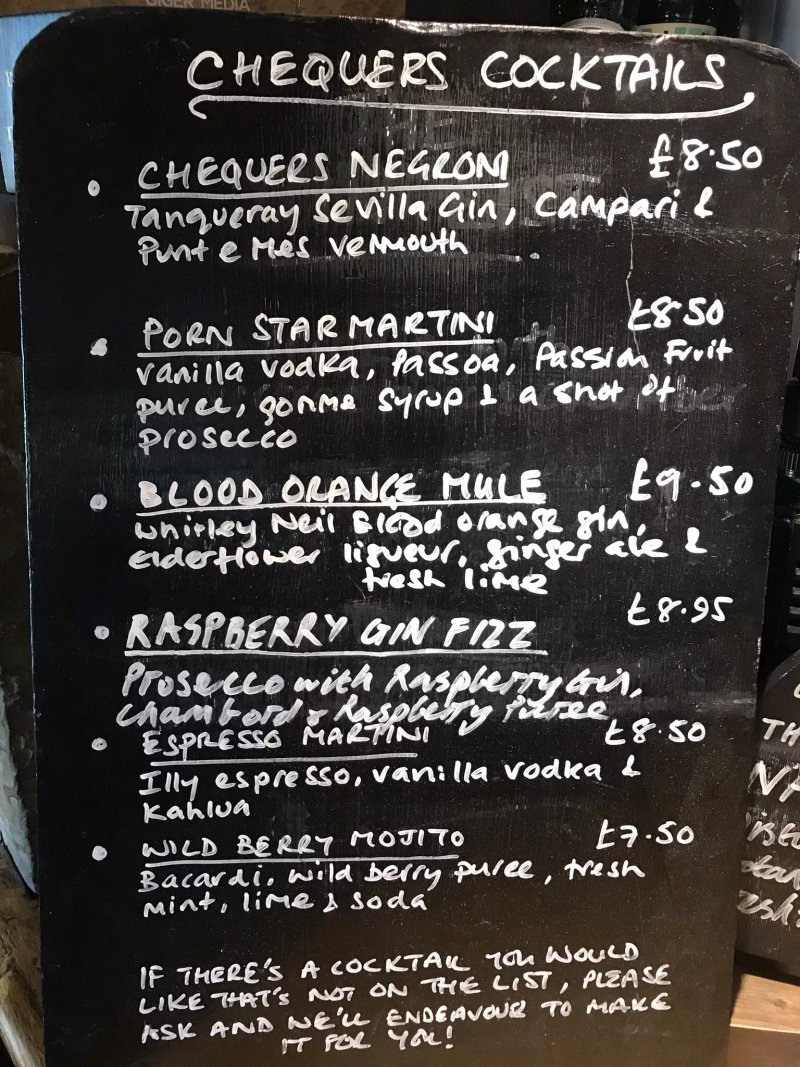 GIGER MEDIA
CHEQUERS COCKTAILS
• CHEQUERS NEGRONI £8.50
Tanqueray Sevilla Gin, Campari &
Punt e Mes Vermouth
• PORN STAR MARTINI £8.50
Vanilla vodka, Passoa, Passion Fruit
puree, gomme syrup & a shot of
prosecco
• BLOOD ORANGE MULE £9.50
Whitley Neil Blood orange gin,
elderflower liqueur, ginger ale &
fresh lime
• RASPBERRY GIN FIZZ £8.95
Prosecco with Raspberry Gin,
Chambord & Raspberry Puree
• ESPRESSO MARTINI £8.50
Illy espresso, vanilla vodka &
Kahlua
• WILD BERRY MOJITO £7.50
Bacardi, wild berry puree, fresh
mint, lime & soda
IF THERE'S A COCKTAIL YOU WOULD
LIKE THAT'S NOT ON THE LIST, PLEASE
ASK AND WE'LL ENDEAVOUR TO MAKE
IT FOR YOU!
TH